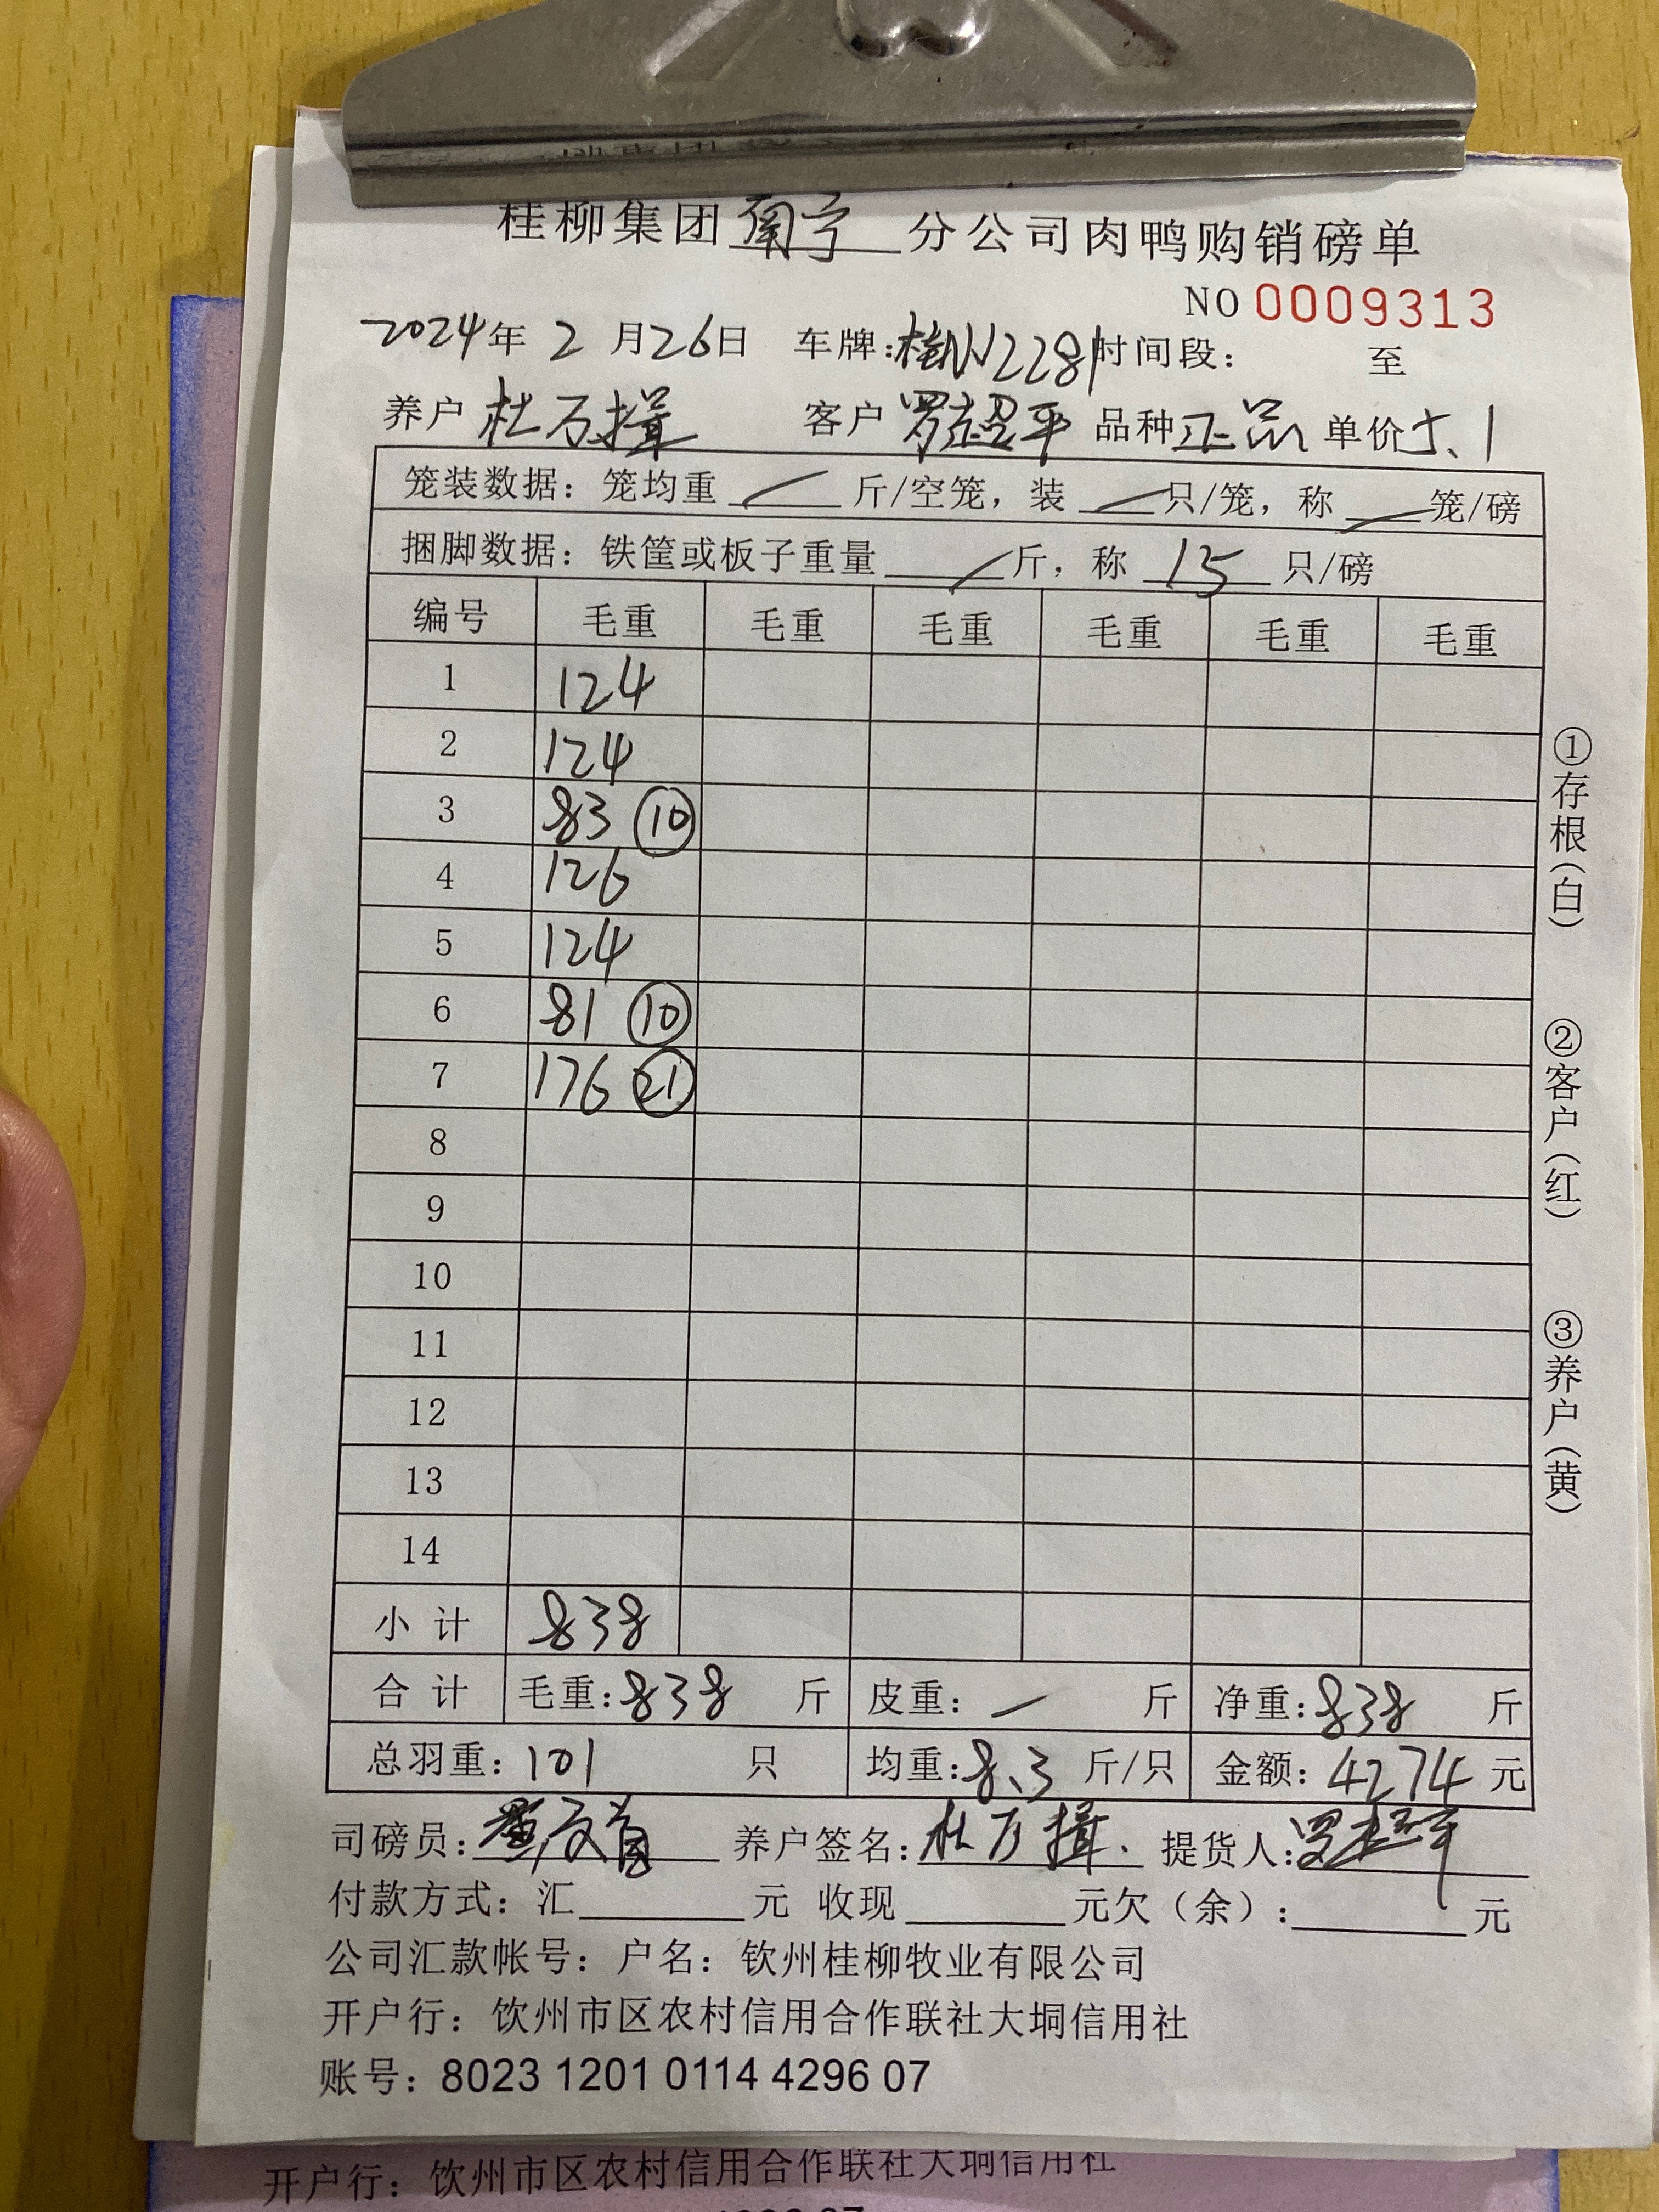 桂柳集团南宁分公司肉鸭购销磅单
NO 0009313
2024年 2 月26日 车牌: 2281时间段: 至
养户 杜万揖 客户 罗超平 品种 正品 单价5、1
笼装数据: 笼均重 / 斤/空笼, 装 / 只/笼, 称 / 笼/磅
捆脚数据: 铁筐或板子重量 / 斤, 称 15 只/磅
编号 毛重 毛重 毛重 毛重 毛重 毛重
1 124
2 124
3 83 ⑩
4 126
5 124
6 81 ⑩
7 176 ㉑
8
9
10
11
12
13
14
小计 838
合计 毛重:838 斤 皮重: / 斤 净重:838 斤
总羽重: 101 只 均重:8、3 斤/只 金额: 4274 元
司磅员: 养户签名: 杜万揖. 提货人: 罗超平
付款方式: 汇 元 收现 元欠(余): 元
公司汇款帐号: 户名: 钦州桂柳牧业有限公司
开户行: 饮州市区农村信用合作联社大垌信用社
账号: 8023 1201 0114 4296 07
①存根(白)
②客户(红)
③养户(黄)
开户行: 饮州市区农村信用合作联社大垌信用社